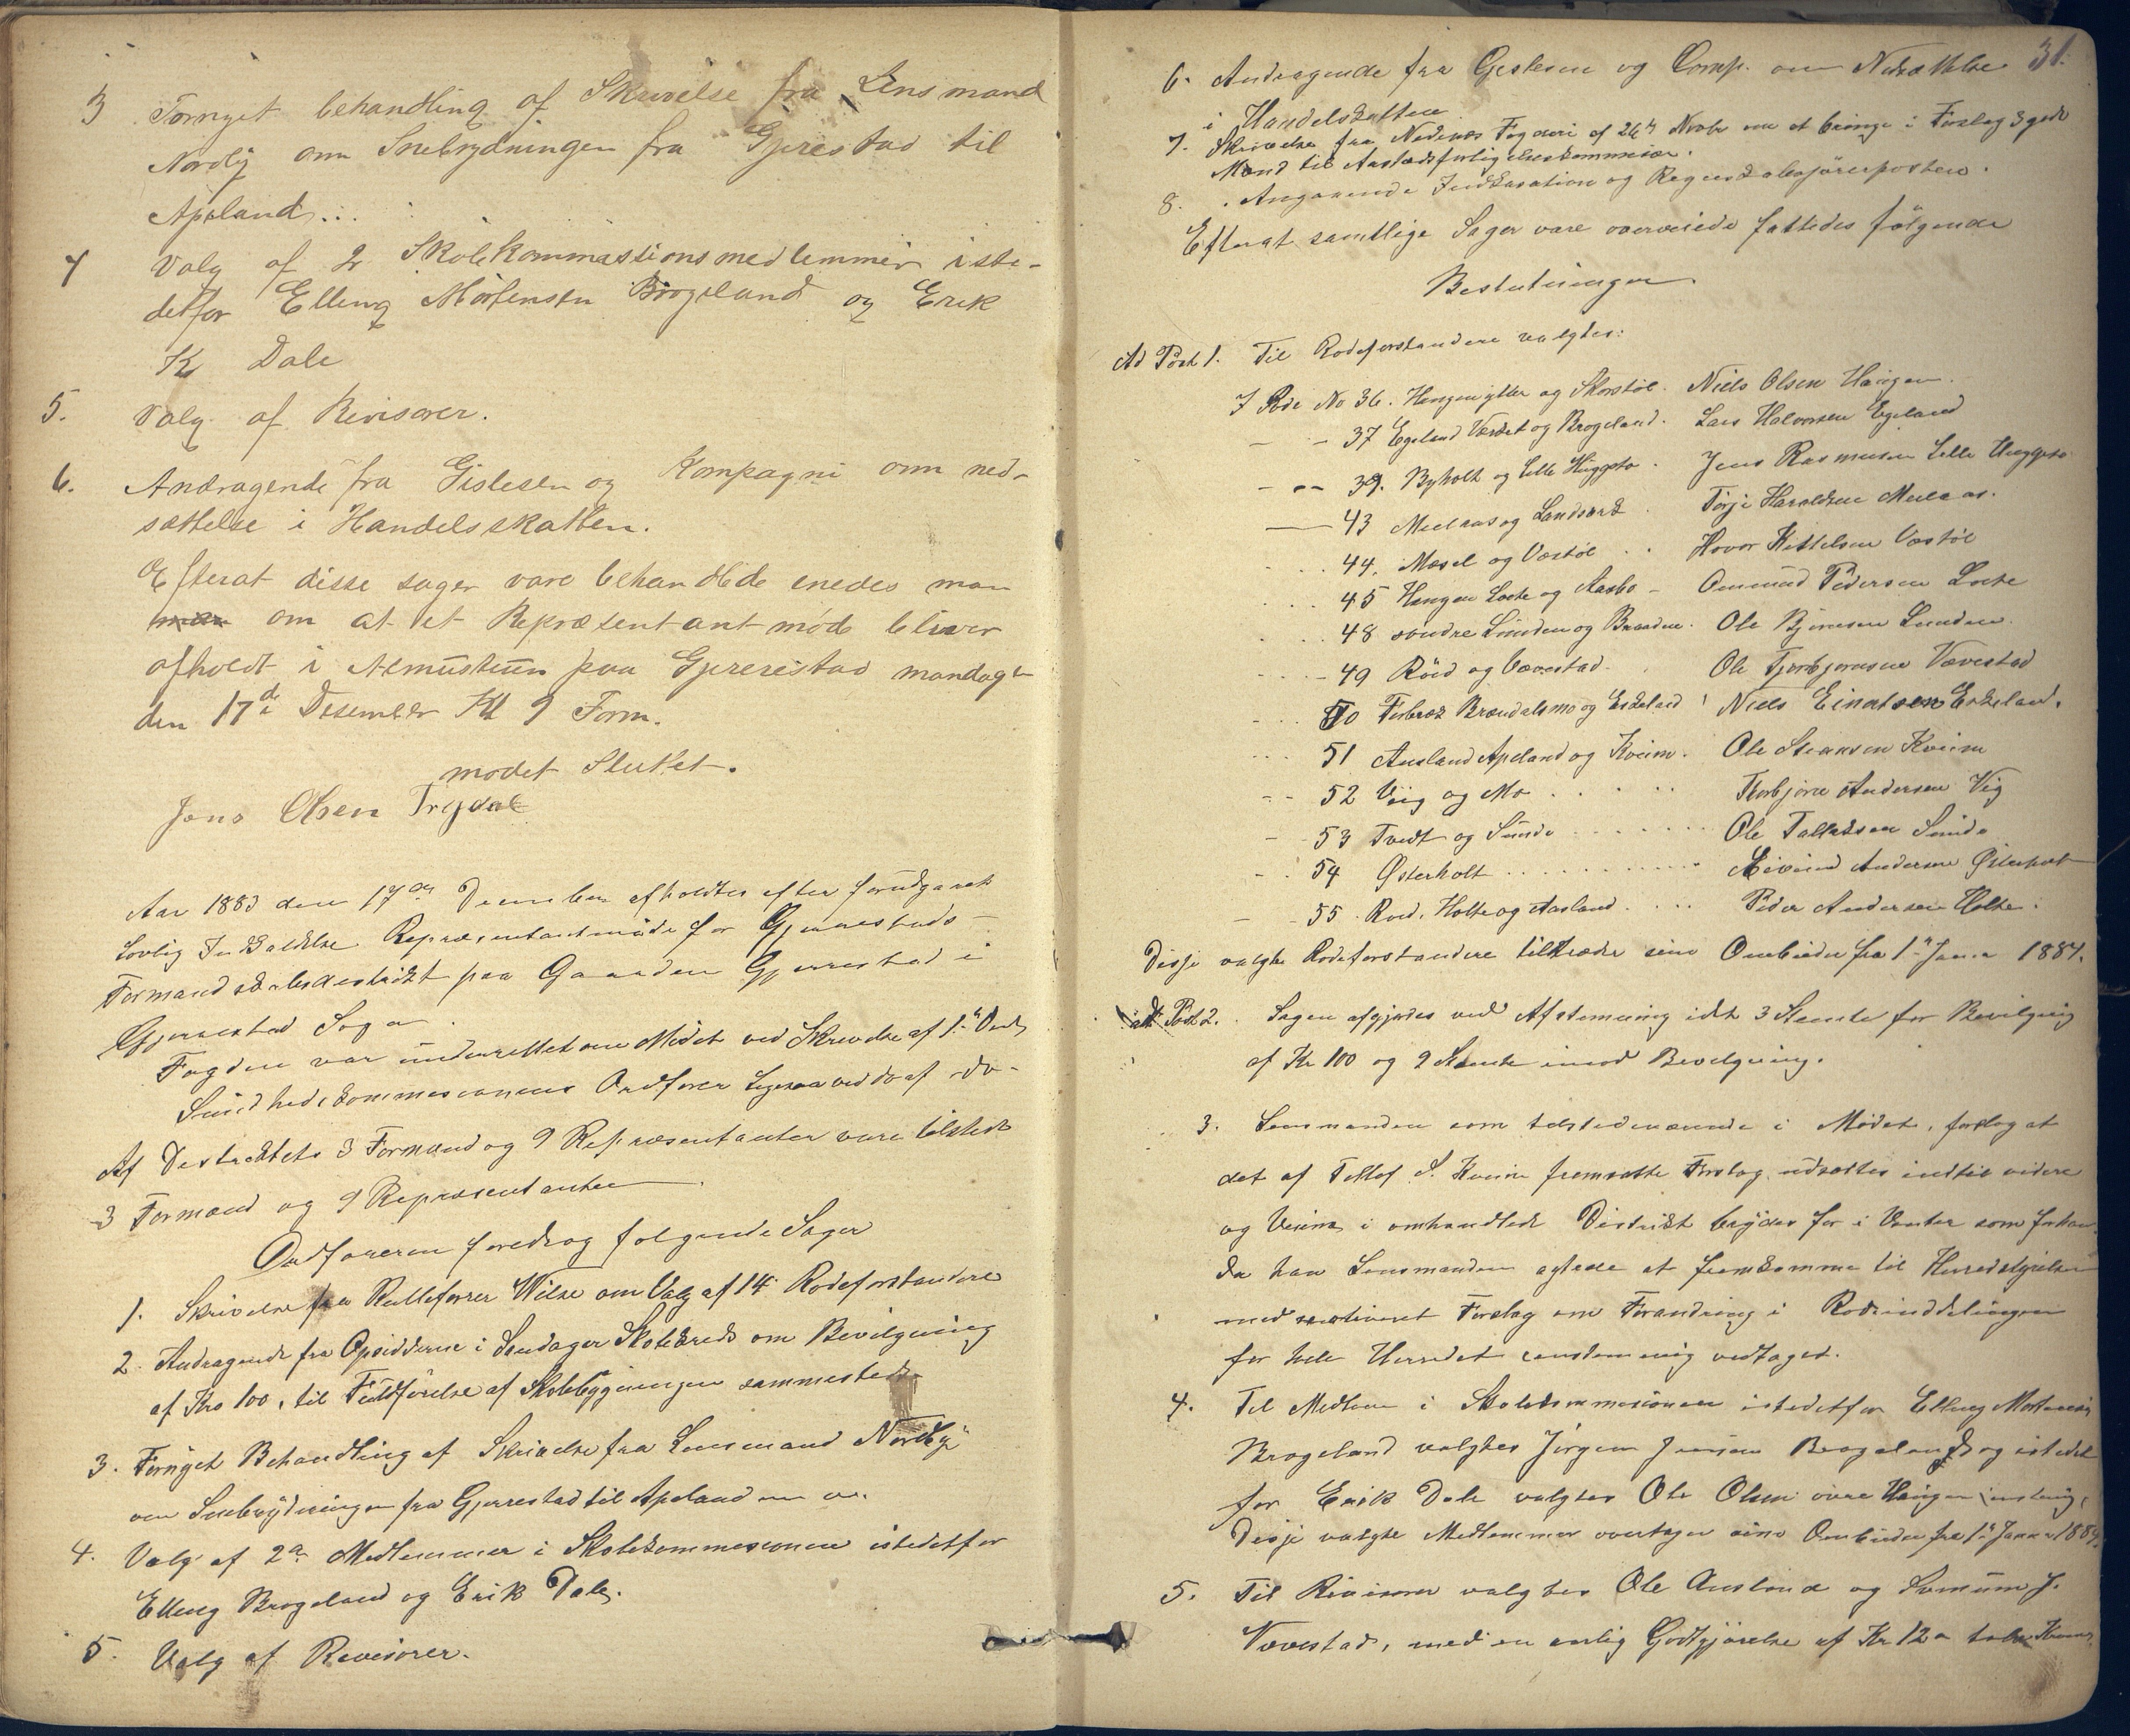 3 Fornyet behandling af Skrivelse fra Lensmand
Nordby om Snebrydningen fra Gjerestad til
Apeland...
4 Valg af 2 Skolekommassionsmedlemmer iste-
detfor Elleng Mortensen Brogeland og Erik
K Dale
5. Valg af Revisorer.
6. Andragende fra Gislesen og Kompagni om ned-
sættelse i Handelsskatten.
Efterat disse sager vare behandlede enedes man
om at et Repræsentantmøde bliver
afholdt i Almustuen paa Gjererestad mandag
den 17de Desember Kl 9 Form.
mødet Sluttet.
Jens Olsen Trydal
Aar 1883 den 17de December afholdtes efter forudgaaet
Lovlig Indkaldelse Repræsentantmøde for Gjerrestads
Formandskabsdestrikt paa Gaarden Gjerrestad i
Gjerrestad Sogn.
Fogden var underrettet om Mødet ved Skrivelse af 1ste Decb
Sundhedskommesionens Ordfører Ligesaa ved do af do-
Af Destriktets 3 Formænd og 9 Repræsentanter vare tilstede
3 Formænd og 9 Repræsentanter
Ordføreren foredrog følgende Sager
1. Skrivelse fra Rulleførrer Wilse om Valg af 14 Rodeforstandere
2. Andragende fra Opsidderne i Sandager Skolekreds om Bevilgning
af Kro 100, til Fuldførelse af Skolebygningen sammesteds
3. Fornyet Behandling af Skrivelse fra Lensmand Nordby
om Snebrydningen fra Gjerrestad til Apeland m. v.
4. Valg af 2de Medlemmer i Skolekommesionen istedetfor
Elleng Brogeland og Erik Dale.
5. Valg af Revisorer.
31.
6. Andragende fra Geslesen og Comp. om Nedsættelse
i Handelsskatten
7. Skrivelse fra Nedenes Fogderi af 26de Novbr om at bringe i Forslag 3 gode
Mænd til Aastedsforligelseskommisær.
8. Angaaende Indkasation og Regnskabsførerposten.
Efterat samtlige Sager vare overveiede fattedes følgende
Beslutninger
Ad Post 1. Til Rodeforstandere valgtes:
I Rode No 36. Hengen ytter og Skorstøl. Niels Olsen Hængen.
- - 37 Egeland Værket og Brogeland. Lars Halvorsen Egeland
- - 39. Byholt og Lille Huggsto. Jens Rasmusen Lille Huggsto
43 Meelaas og Landsverk. Torje Haraldsen Meelaas.
44. Mosel og Vestøl . . Hovor Kittelsen Vestøl
45 Hengen Lotte og Aasbo - Ommund Pedersen Lotte
48 søndre Lunden og Braaden. Ole Bjørnsen Lunden.
49 Röed og Vævestad. Ole Tjorbjørnsen Vævestad
50 Fosbræk Brændalsmo og Eskeland Niels Einertsen Eskeland.
51 Ausland Apeland og Kveim. Ole Steansen Kveim
52 Viig og Mo . . . . Thorbjørn Andersen Vig
53 Tvedt og Sunde . . . . Ole Tallaksen Sunde
54 Østerholt . . . . Eivind Andersen Østerholt
55. Roed, Holte og Aasland . . . . Peder Andersen Holte.
Disse valgte Rodeforstandere tiltræder sine Ombuder fra 1ste Januar 1884.
ad Post 2. Sagen afgjordes ved Afstemning idet 3 Stemte for Bevilgning
af Kr 100 og 9 Stemte imod Bevelgning.
3. Lensmanden som tilstedeværende i Mødet, forslog at
det af Tellef S. Kveim fremsatte Forslag udsættes indtil videre
og Veiene i omhandlede Distrikt brydes for i Vinter som forhen
da han Lensmanden agtede at fremkomme til Herredstyrelsen
med motiveret Forslag om Forandring i Rodeinddelingen
for hele Herredet eenstemmig vedtaget.
4. Til Medlem i Skolekommesionen istedetfor Elleng Mortensen
Brogeland valgtes Jørgen Jensen Brogeland og istedet
for Erik Dale valgtes Ole Olsen øvre Hængen
Disse valgte Medlemmer overtager sine Ombuder fra 1ste Januar 1884.
5. Til Revisorer valgtes Ole Ausland og J.
Vævestad, med en aarlig Godtgjørelse af Kr 12 a tolv Kroner